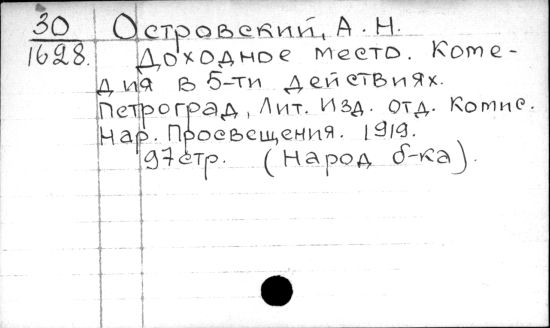 30 Островский, А. Н.
1628. Доходное место. Коме-
дия в 5-ти действиях.
Петроград, Лит. Изд. отд. Комис.
Нар. Просвещения. 1919.
97стр. (Народ б-ка).